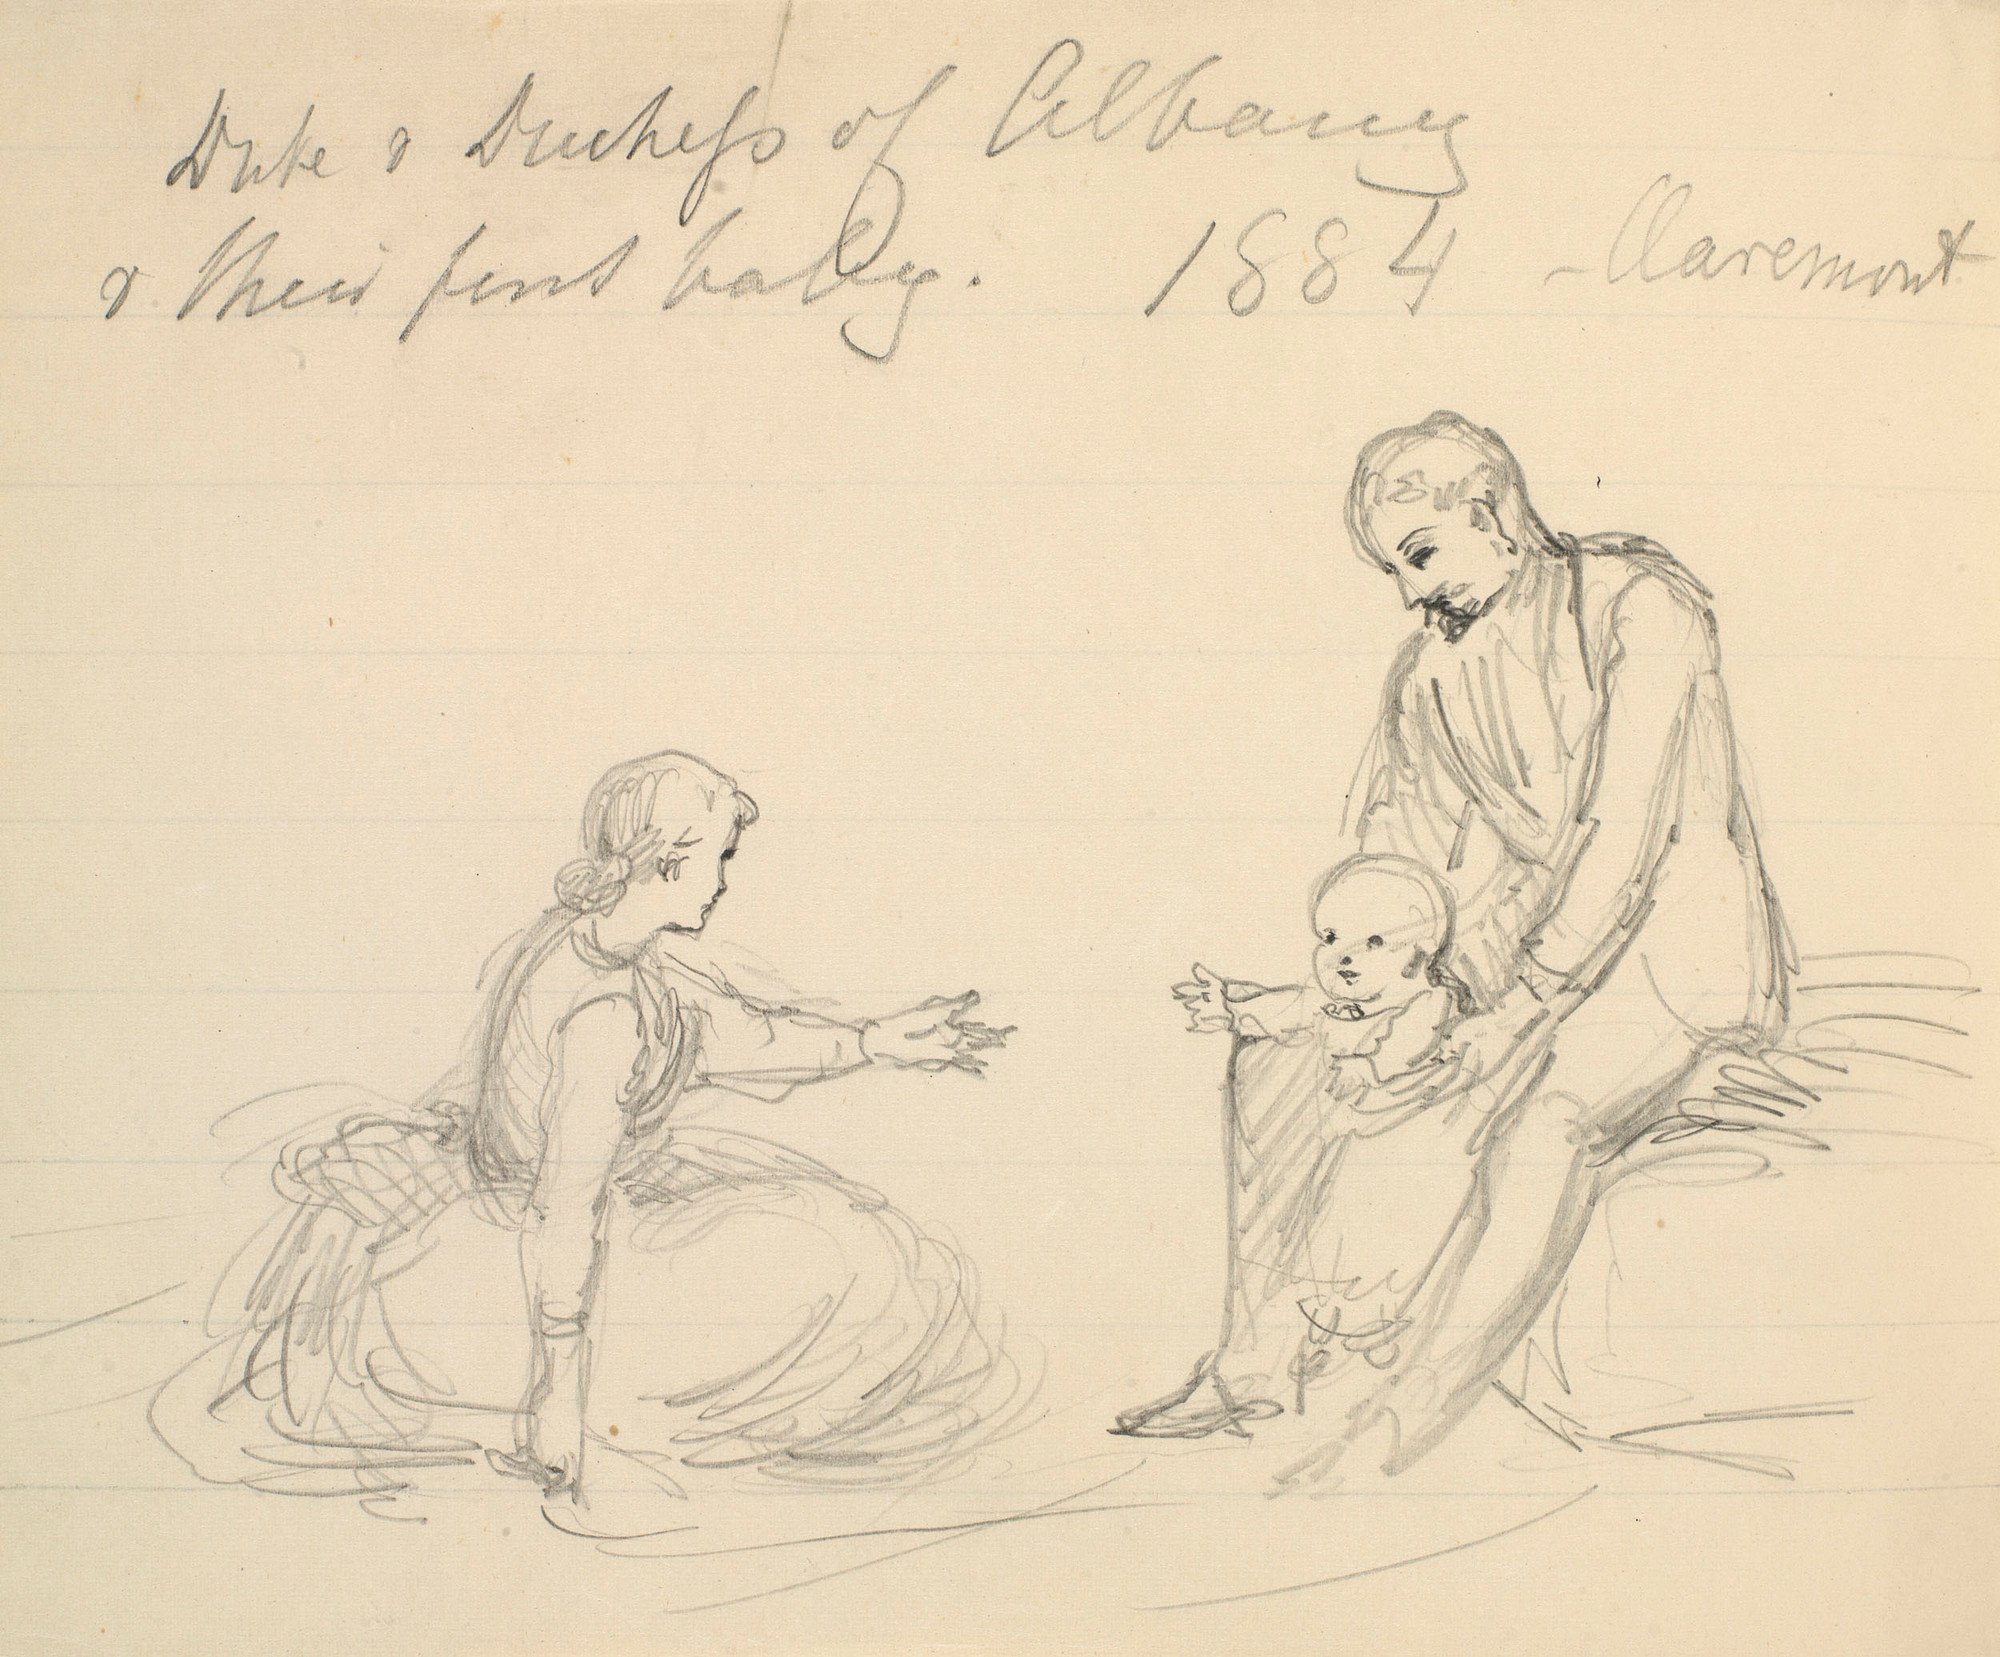 Duke & Duchess of Albany
& their first baby. 1884 - Claremont